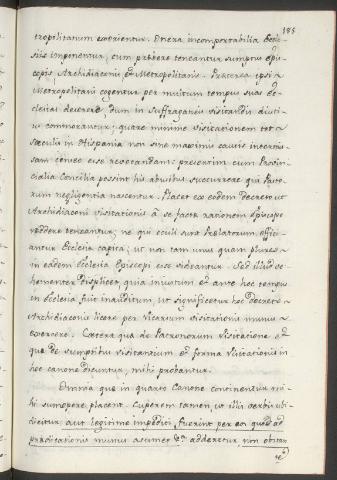 185
tropolitanum exerientur. Onera incomportabilia Eccle-
siis imponentur, cum præbere teneantur sumptus Epis-
copis, Archidiaconis, et Metropolitanis. Præterea ipsi
Metropolitani cogentur per multum tempus suas Ec-
clesias deserere, dum in Suffraganeis visitandis diuti-
us commorantur; quare minime visitationem tot
sæculis in Hispania non sine maximis causis intermis-
sam censeo esse revocandam: præsertim cum Provin-
cialia Concilia possint his abusibus succurrere qui Pasto-
rum negligentia nascentur. Placet ex eodem Decreto ut
Archidiaconi visitationis à se factæ rationem Episcopo
reddere teneantur; ne qui oculi sunt Prælatorum, effici-
antur Ecclesiæ capita; ut non tam unus quam plures
in eadem Ecclesia Episcopi esse videantur. Sed illud ve-
hementer displicet, quia inusitatum et ante hoc tempus
in Ecclesia fuit inauditum, ut significetur hoc decreto
Archidiaconis licere per Vicarium visitationis munus
exercere. Cætera quæ de Patronorum Visitatione et
quæ de sumptibus visitantium et forma Visitationis in
hoc canone dicuntur, mihi probantur.
Omnia quæ in quarto Canone continentur mi-
hi summopere placent. Cuperem tamen, ut illis verbis ubi
dicitur, aut legitime impediti fuerint per eos quos ad
prædicationis munus assument adderetur, non obstan